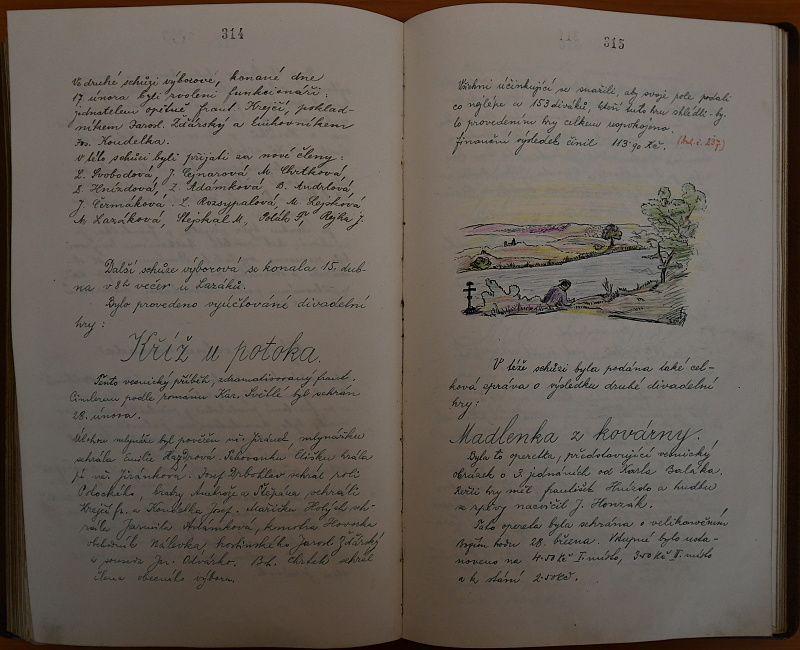 314
Ve druhé schůzi výborové, konané dne
17. února byli zvoleni funkcionáři:
jednatelem opětně frant. Krejčí, poklad-
níkem Jarosl. Žďárský a knihovníkem
Jos. Koudelka.
V této schůzi byli přijati za nové členy:
L. Svobodová, J. Cejnarová M. Chrtková,
B. Hnízdová, Z. Adámková, B. Andrlová,
J. Čermáková, L. Rozsypalová, M. Rejsková
M. Lazáková, Stejskal M., Polák Fr., Rejka J.
Další schůze výborová se konala 15. dub-
na v 8h večer u Lazáků.
Bylo provedeno vyúčtování divadelní
hry:
Kříž u potoka.
Tento vesnický příběh, zdramatisovaný frant.
podle románu Kar. Světlé byl sehrán
28. února.
mlynář byl pověřen uč. mlynářku
sehrála Emilie Elišku hrála
sl. uč. Jiránková. Josef Drbohlav sehrál roli
Potockého, bratry Ambrože a Štěpána sehráli
Krejčí fr. a Koudelka Josef. Maričku Holých seh-
rála Jarmila Adámková, kmotra Hovorku
Nálevka, hostinského Jarosl. Žďárský
a souseda Jos. Odvárko. Boh. Chrtek sehrál
člena obecního výboru.
315
Všichni účinkující se snažili, aby svoje role podali
co nejlépe a 153 diváků, kteří tuto hru shlédli by-
lo provedením hry celkem uspokojeno.
finanční výsledek činil 113·90 Kč. (
V téže schůzi byla podána také cel-
ková zpráva o výsledku druhé divadelní
hry:
Madlenka z kovárny.
Byla to opereta, představující vesnický
obrázek o 3. jednáních od Karla Baláka.
Režii hry měl františek Hnízdo a hudbu
se zpěvy nacvičil J. Honzák.
Tato opereta byla sehrána o velikonočním
Božím hodu 28. března. Vstupné bylo usta-
noveno na 4·50 Kč I. místo, 3·50 Kč II. místo
a k stání 2·50 Kč.